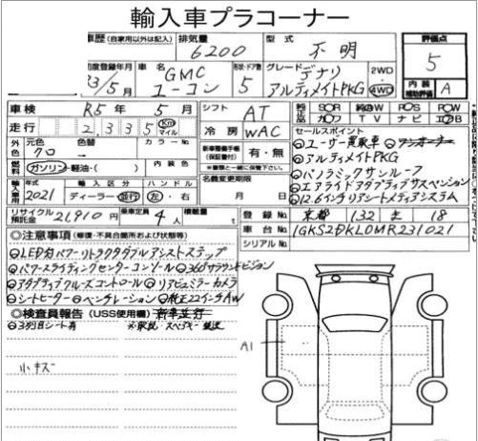 輸入車プラコーナー
車歴 (自家用以外は記入) 排気量 6200 型式 不明 評価点 5
初度登録年月 R3/5月 車名 GMC ユーコン 形状・ドア数 5 グレード デナリ アルティメイトPKG 2WD 4WD 内装補助評価 A
車検 R5年5月 シフト AT
走行 2335 Km マイル 冷房 WAC
SOR 純AW PS PW
カワ TV ナビ エアB
外色 元色 クロ 色替 カラーNo 内装色
燃料 ガソリン・軽油・( )
新車整備手帳 (保証書付) 有・無
セールスポイント
ユーザー買取車 ワンオーナー
アルティメイトPKG
パノラミックサンルーフ
エアライドアダプティブサスペンション
12.6インチリアシートメディアシステム
輸入車用 年式 2021 輸入区分 ディーラー・並行 ハンドル 左・右
名義変更期限 月 日
リサイクル預託金 21,910円 乗車定員 4人 積載量
登録No 京都 132 ま 18
車台No 1GKS2DKL0MR231021
シリアルNo
◎注意事項 (修復・不具合箇所および状態等)
LED付パワーリトラクタブルアシストステップ
パワースライディングセンターコンソール 360°サラウンドビジョン
アダプティブクルーズコントロール リアビュミラーカメラ
シートヒーター ベンチレーション 純正22インチAW
◎検査員報告 (USS使用欄) 新車並行
3列目シート有 ※取説・スペアキー 後送
小キズ
A1